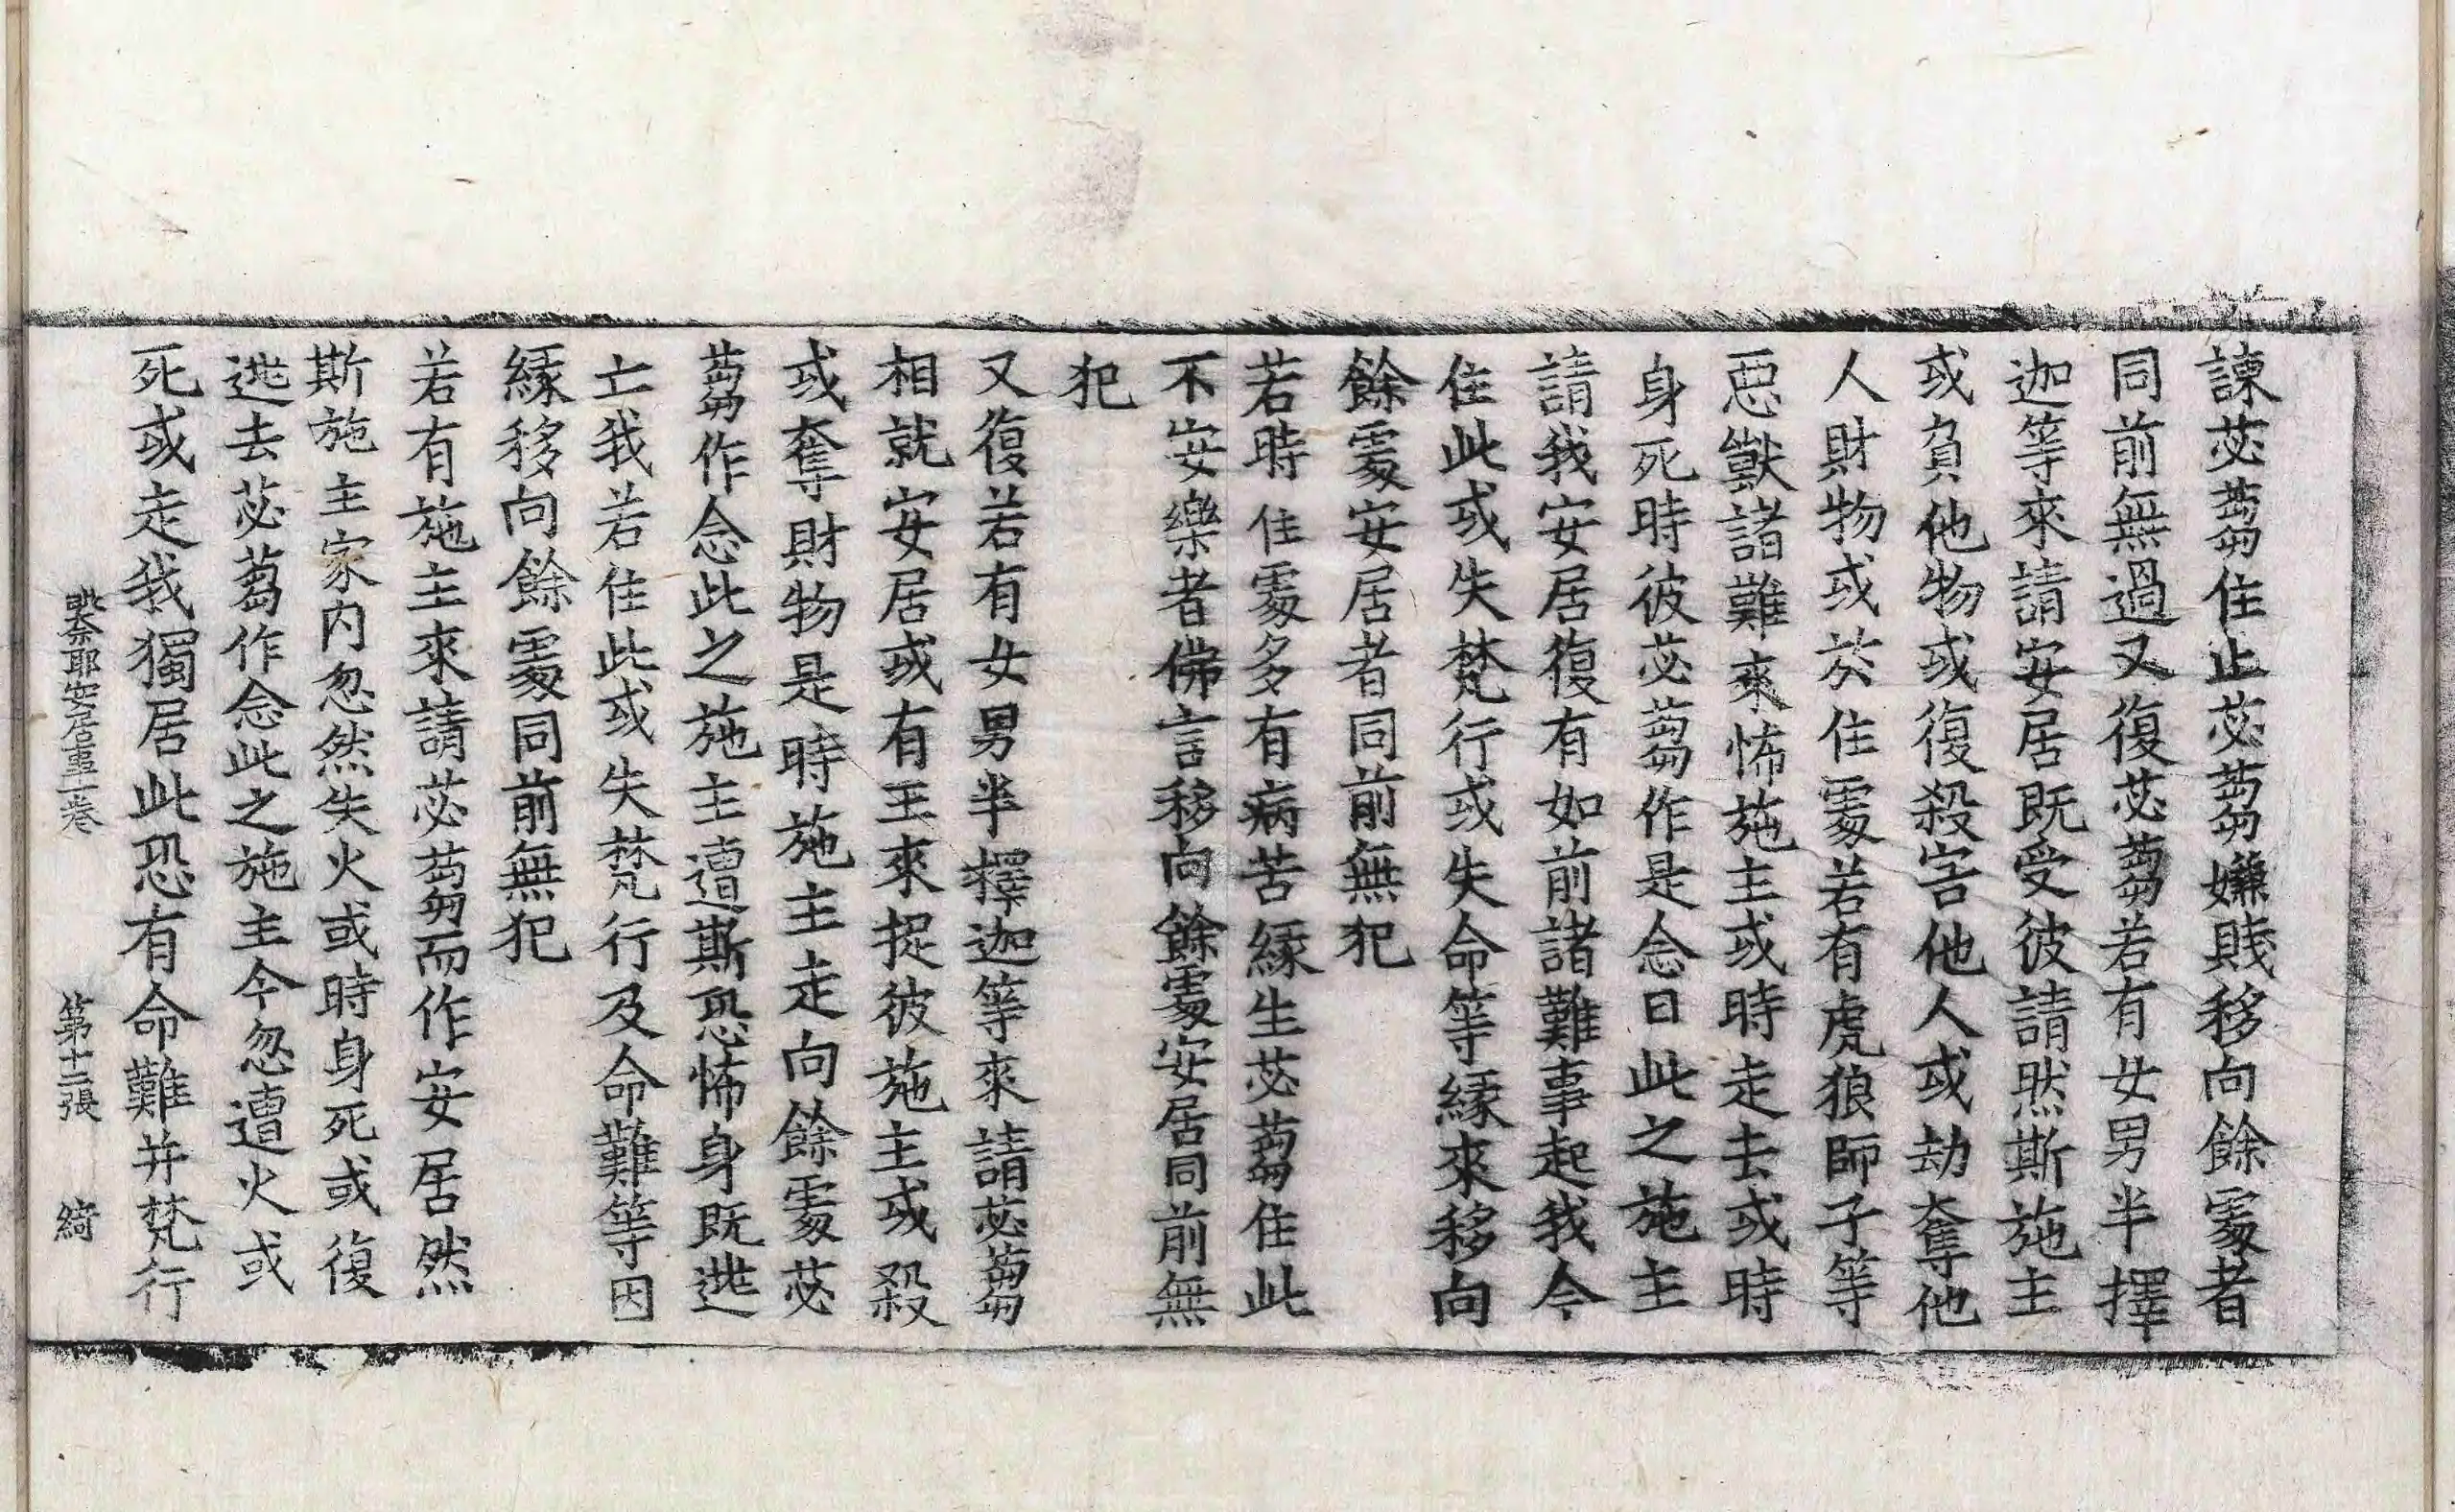 諫苾蒭住止苾蒭嫌賤移向餘處者
同前無過又復苾蒭若有女男半擇
迦等來請安居既受彼請然斯施主
或負他物或復殺害他人或劫奪他
人財物或於住處若有虎狼師子等
惡獸諸難來怖施主或時走去或時
身死時彼苾蒭作是念曰此之施主
請我安居復有如前諸難事起我今
住此或失梵行或失命等緣來移向
餘處安居者同前無犯
若時住處多有病苦緣生苾蒭住此
不安樂者佛言移向餘處安居同前無
犯
又復若有女男半擇迦等來請苾蒭
相就安居或有王來捉彼施主或殺
或奪財物是時施主走向餘處苾
蒭作念此之施主遭斯恐怖身既逃
亡我若住此或失梵行及命難等因
緣移向餘處同前無犯
若有施主來請苾蒭而作安居然
斯施主家內忽然失火或時身死或復
逃去苾蒭作念此之施主今忽遭火或
死或走我獨居此恐有命難并梵行
毗奈耶安居事一卷 第十二張 綺